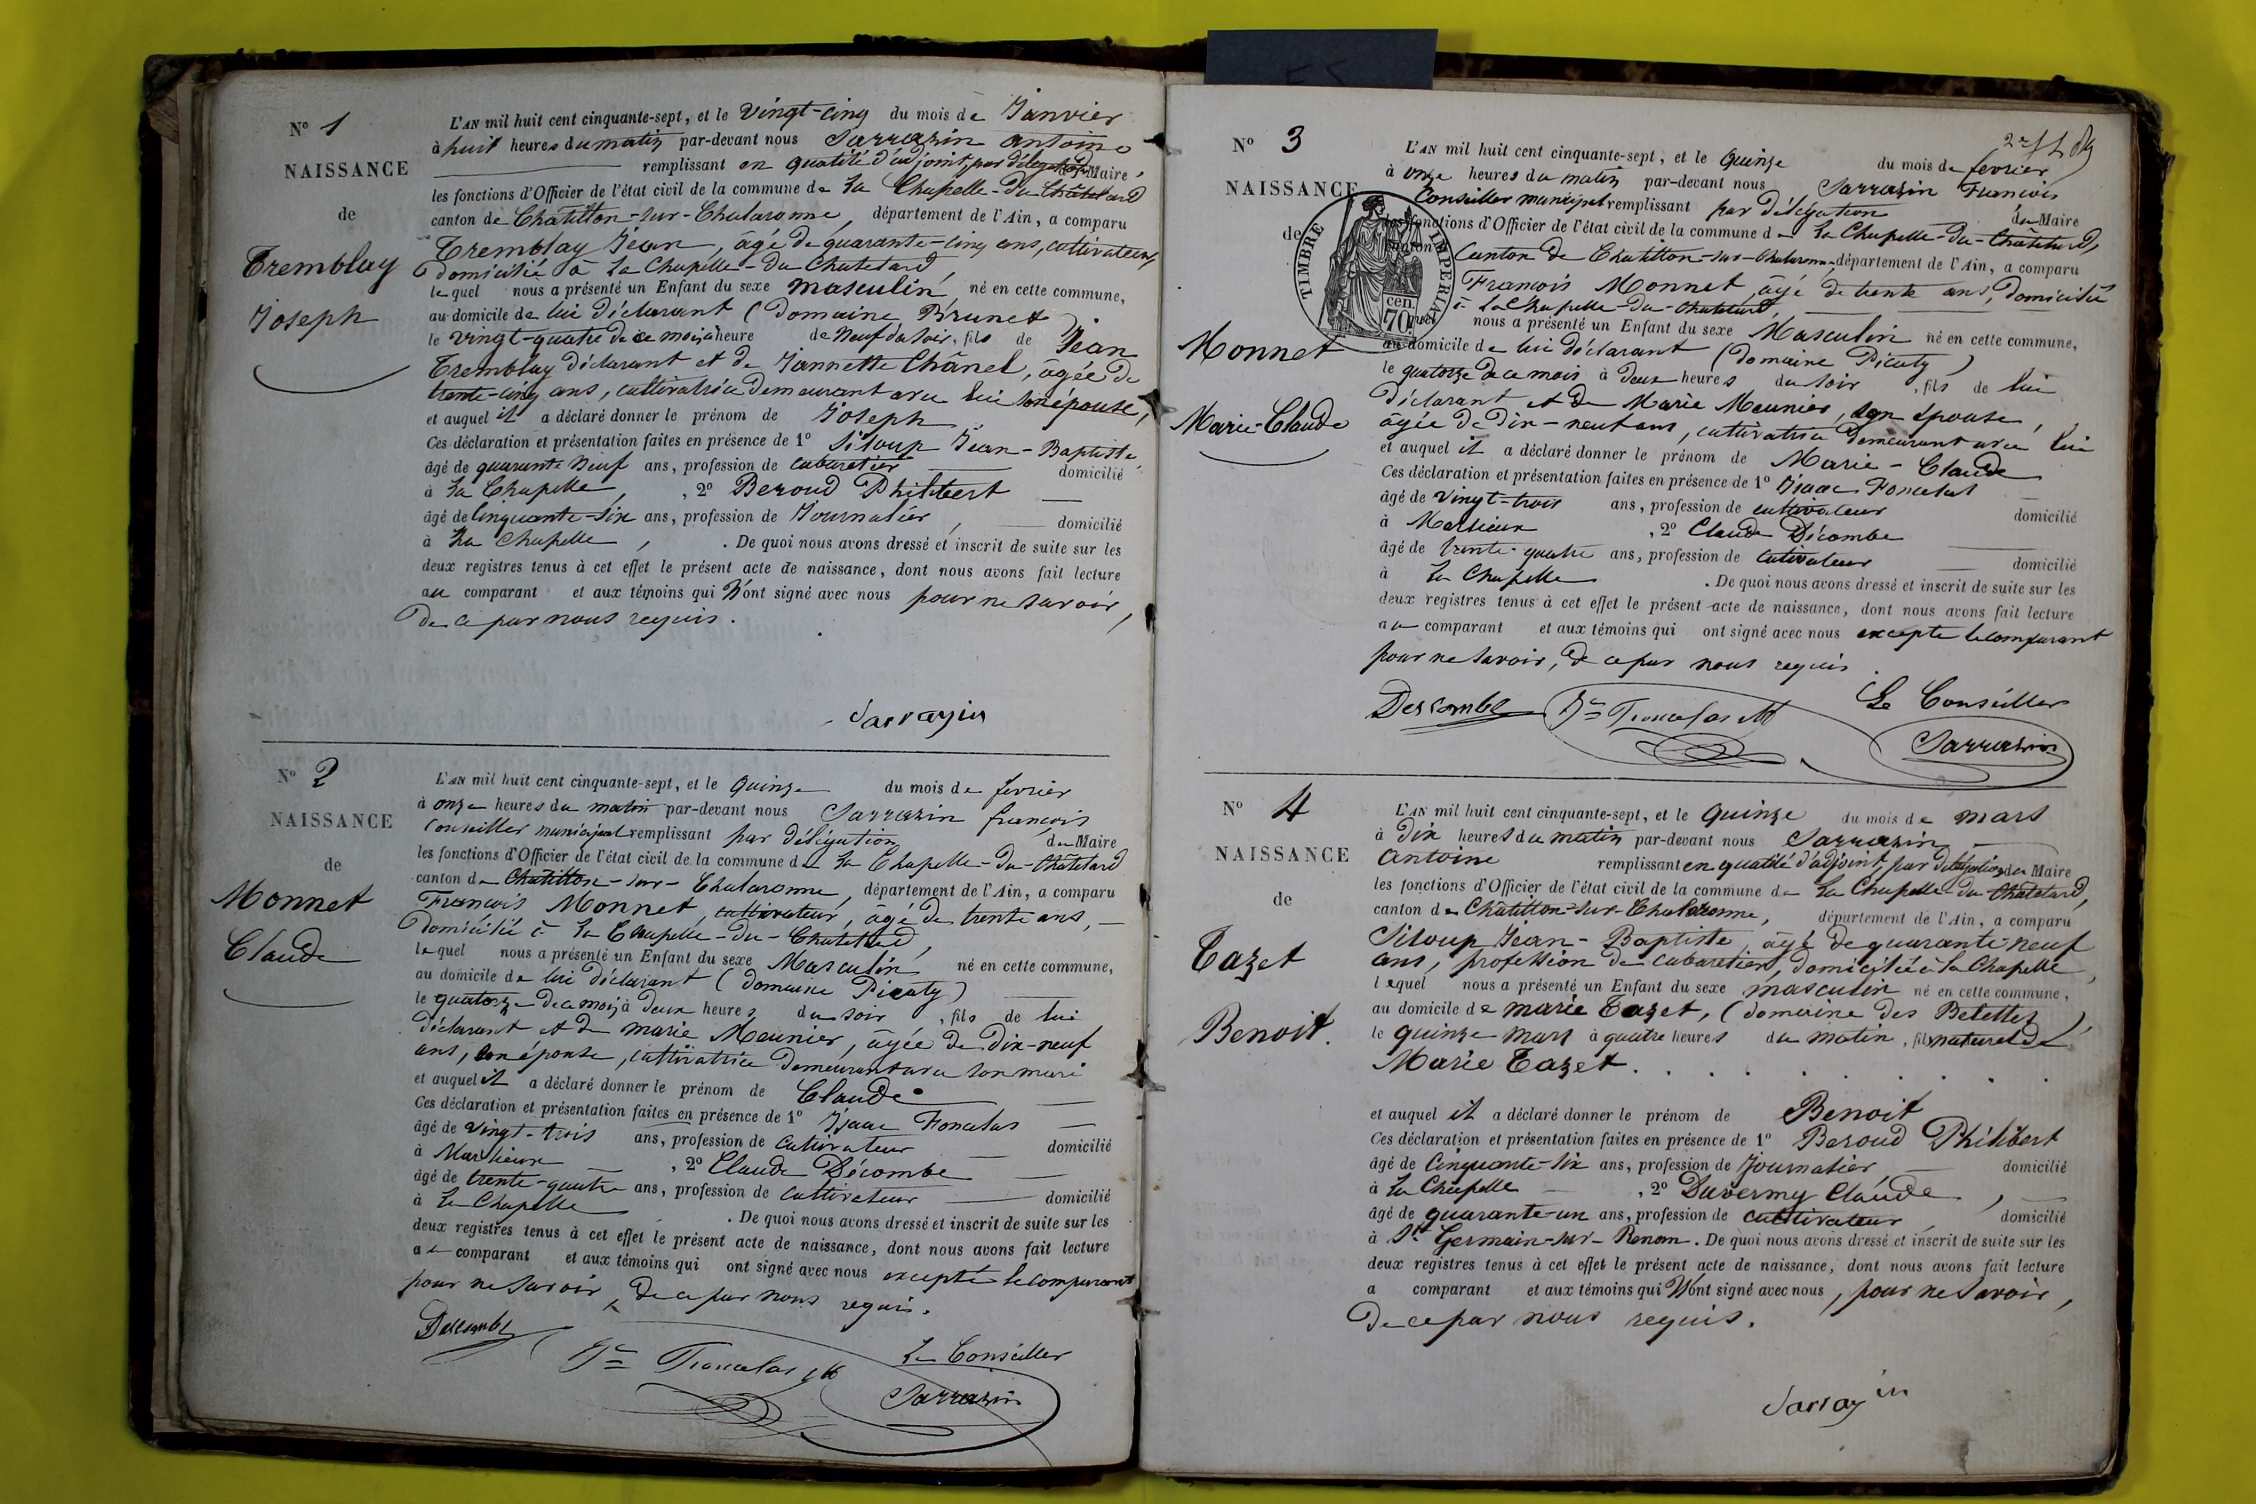 N° 1
NAISSANCE
de
Tremblay
Joseph
L'AN mil huit cent cinquante-sept, et le vingt-cinq du mois de Janvier
à huit heures du matin par-devant nous Sarrazin antoine
remplissant en qualité d'adjoint, par délégation du Maire
les fonctions d'Officier de l'état civil de la commune de La Chapelle-du-Châtelard
canton de Châtillon-sur-Chalaronne, département de l'Ain, a comparu
Tremblay Jean, âgé de quarante-cinq ans, cultivateur,
domicilié à La Chapelle-du Chatelard,
lequel nous a présenté un Enfant du sexe masculin né en cette commune,
au domicile de lui déclarant (domaine Brunet)
le vingt-quatre de ce mois à heure de Neuf du soir, fils de Jean
Tremblay déclarant et de Jannette Chânel, âgée de
trente-cinq ans, cultivatrice demeurant avec lui son épouse,
et auquel il a déclaré donner le prénom de Joseph
Ces déclaration et présentation faites en présence de 1° Siloup Jean-Baptiste
âgé de quarante Neuf ans, profession de cabaretier domicilié
à La Chapelle, , 2° Beroud Philibert
âgé de Cinquante-six ans, profession de Journalier, domicilié
à La Chapelle, . De quoi nous avons dressé et inscrit de suite sur les
deux registres tenus à cet effet le présent acte de naissance, dont nous avons fait lecture
au comparant et aux témoins qui N'ont signé avec nous pour ne savoir,
de ce par nous requis.
Sarrazin
N° 2
NAISSANCE
de
Monnet
Claude
L'AN mil huit cent cinquante-sept, et le quinze du mois de fevrier
à onze heures du matin par-devant nous Sarrazin francois
Conseiller municipal remplissant par délégation du Maire
les fonctions d'Officier de l'état civil de la commune de La Chapelle-du-Châtelard
canton de Châtillon-sur-Chalaronne, département de l'Ain, a comparu
Francois Monnet, cultivateur, âgé de trente ans,
domicilié à La Chapelle-du-Chatelard,
lequel nous a présenté un Enfant du sexe Masculin né en cette commune,
au domicile de lui déclarant (domaine Picaty)
le quatorze de ce mois à deux heures du soir, fils de lui
déclarant et de marie Meunier, âgée de Dix-neuf
ans, son épouse, cultivatrice demeurant avec son mari
et auquel il a déclaré donner le prénom de Claude
Ces déclaration et présentation faites en présence de 1° Isaac
âgé de vingt-trois ans, profession de cultivateur domicilié
à Marlieux , 2° Claude Décombe
âgé de trente-quatre ans, profession de cultivateur domicilié
à La Chapelle . De quoi nous avons dressé et inscrit de suite sur les
deux registres tenus à cet effet le présent acte de naissance, dont nous avons fait lecture
au comparant et aux témoins qui ont signé avec nous excepté le comparant
pour ne savoir, de ce par nous requis.
Descombe
Le Conseiller
Sarrazin
N° 3
NAISSANCE
de
Monnet
Marie-Claude
TIMBRE IMPERIAL
70 cen.
L'AN mil huit cent cinquante-sept, et le quinze du mois de fevrier
à onze heures du matin par-devant nous Sarrazin Francois
Conseiller municipal remplissant par délégation du Maire
les fonctions d'Officier de l'état civil de la commune de La Chapelle-du-Châtelard,
canton Canton de Chatillon-sur-Chalaronne, département de l'Ain, a comparu
Francois Monnet, âgé de trente ans, domicilié
à La Chapelle-du-Chatelard,
lequel nous a présenté un Enfant du sexe Masculin né en cette commune,
au domicile de lui déclarant (domaine Picaty)
le quatorze de ce mois à deux heures du soir, fils de lui
déclarant et de Marie Meunier, son épouse,
âgée de dix-neuf ans, cultivatrice demeurant avec lui
et auquel il a déclaré donner le prénom de Marie-Claude
Ces déclaration et présentation faites en présence de 1° Isaac
âgé de vingt-trois ans, profession de cultivateur domicilié
à Marlieux , 2° Claude Décombe
âgé de trente-quatre ans, profession de cultivateur domicilié
à La Chapelle . De quoi nous avons dressé et inscrit de suite sur les
deux registres tenus à cet effet le présent acte de naissance, dont nous avons fait lecture
au comparant et aux témoins qui ont signé avec nous excepté le comparant
pour ne savoir, de ce par nous requis.
Descombe
Le Conseiller
Sarrazin
N° 4
NAISSANCE
de
Tazet
Benoit.
L'AN mil huit cent cinquante-sept, et le quinze du mois de mars
à dix heures du matin par-devant nous Sarrazin
antoine remplissant en qualité d'adjoint, par délégation du Maire
les fonctions d'Officier de l'état civil de la commune de La Chapelle-du-Chatelard,
canton de Châtillon-sur-Chalaronne, département de l'Ain, a comparu
Siloup Jean-Baptiste, âgé de quarante neuf
ans, profession de cabaretier, domicilié à la Chapelle,
lequel nous a présenté un Enfant du sexe masculin né en cette commune,
au domicile de marie Tazet, (domaine des Belettes)
le quinze mars à quatre heures du matin, fils naturel de
Marie Tazet.
et auquel il a déclaré donner le prénom de Benoit
Ces déclaration et présentation faites en présence de 1° Beroud Philibert
âgé de Cinquante-six ans, profession de Journalier domicilié
à La Chapelle , 2° Duvermy Claude,
âgé de quarante-un ans, profession de cultivateur domicilié
à St Germain-sur-Renom. De quoi nous avons dressé et inscrit de suite sur les
deux registres tenus à cet effet le présent acte de naissance, dont nous avons fait lecture
a comparant et aux témoins qui N'ont signé avec nous, pour ne savoir,
de ce par nous requis.
Sarrazin